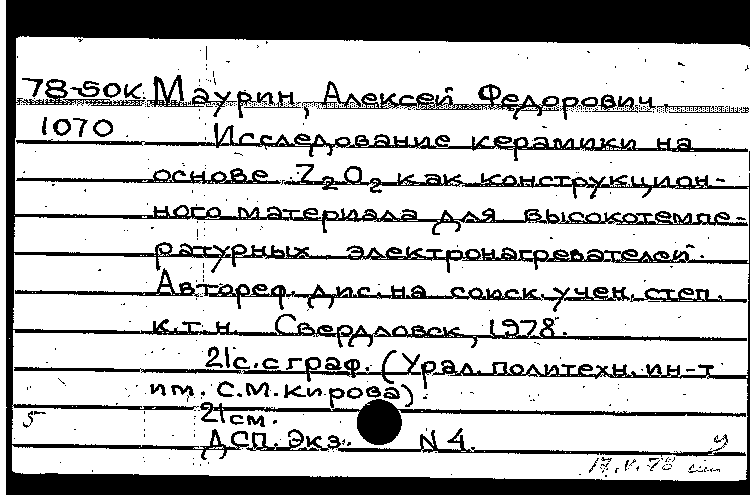 78-50к Маурин, Алексей Федорович.
1070 Исследование керамики на
основе Z2O2 как конструкцион-
ного материала для высокотемпе-
ратурных электронагревателей.
Автореф. дис. на соиск. учен. степ.
к.т.н. Свердловск, 1978.
21с. с граф. (Урал. политехн. ин-т
им. С.М. Кирова).
21см.
5 ДСП. Экз. N 4. у
17.V.78